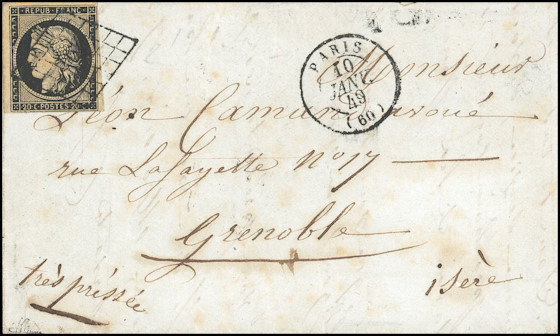 REPUB. FRANC.
20 C. POSTES 20
PARIS
10
JANV.
49
(60)
Monsieur
Léon Camus avoué
rue Lafayette N° 17
Grenoble
très pressée
isère